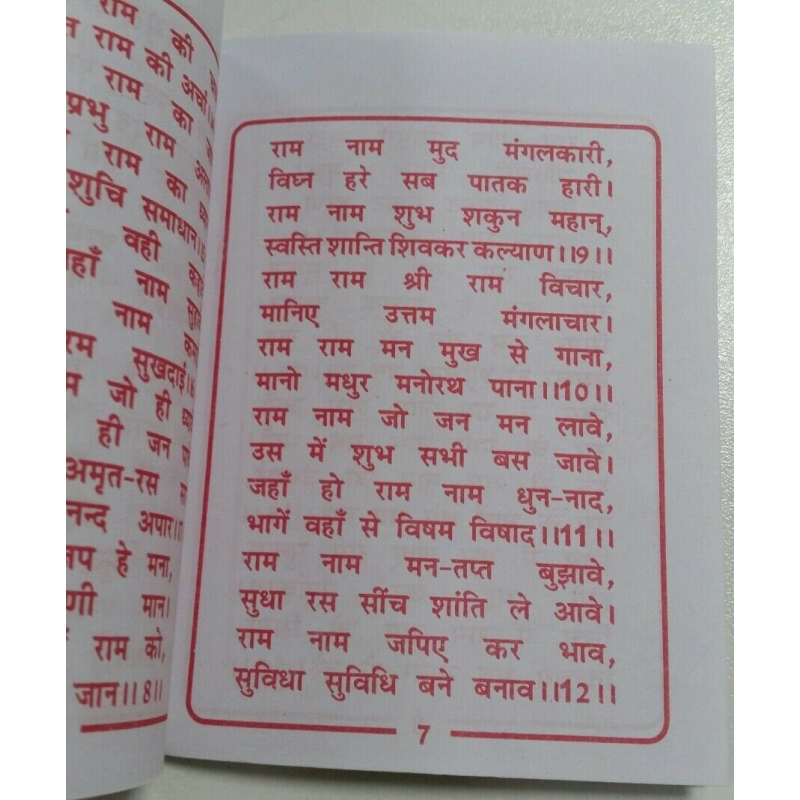 राम की
राम की अर्चा
राम का
प्रभु राम
राम का
शुचि समाधान
वही
नाम
नाम
सुखदाई
जो ही
ही जन
अमृत-रस
अपार
हे मना,
मान।
राम को,
जान।।8।।
राम नाम मुद मंगलकारी,
विघ्न हरे सब पातक हारी।
राम नाम शुभ शकुन महान्,
स्वस्ति शान्ति शिवकर कल्याण।।9।।
राम राम श्री राम विचार,
मानिए उत्तम मंगलाचार।
राम राम मन मुख से गाना,
मानो मधुर मनोरथ पाना।।10।।
राम नाम जो जन मन लावे,
उस में शुभ सभी बस जावे।
जहाँ हो राम नाम धुन-नाद,
भागें वहाँ से विषम विषाद।।11।।
राम नाम मन-तप्त बुझावे,
सुधा रस सींच शांति ले आवे।
राम नाम जपिए कर भाव,
सुविधा सुविधि बने बनाव।।12।।
7